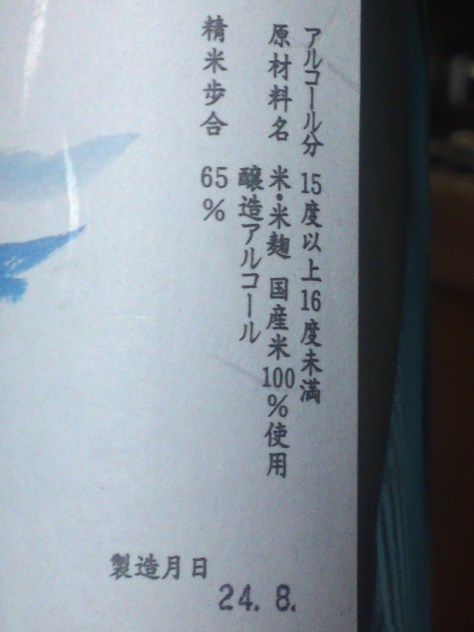 アルコール分 15度以上16度未満
原材料名 米・米麹 国産米100%使用
醸造アルコール
精米歩合 65%
製造月日
24. 8.